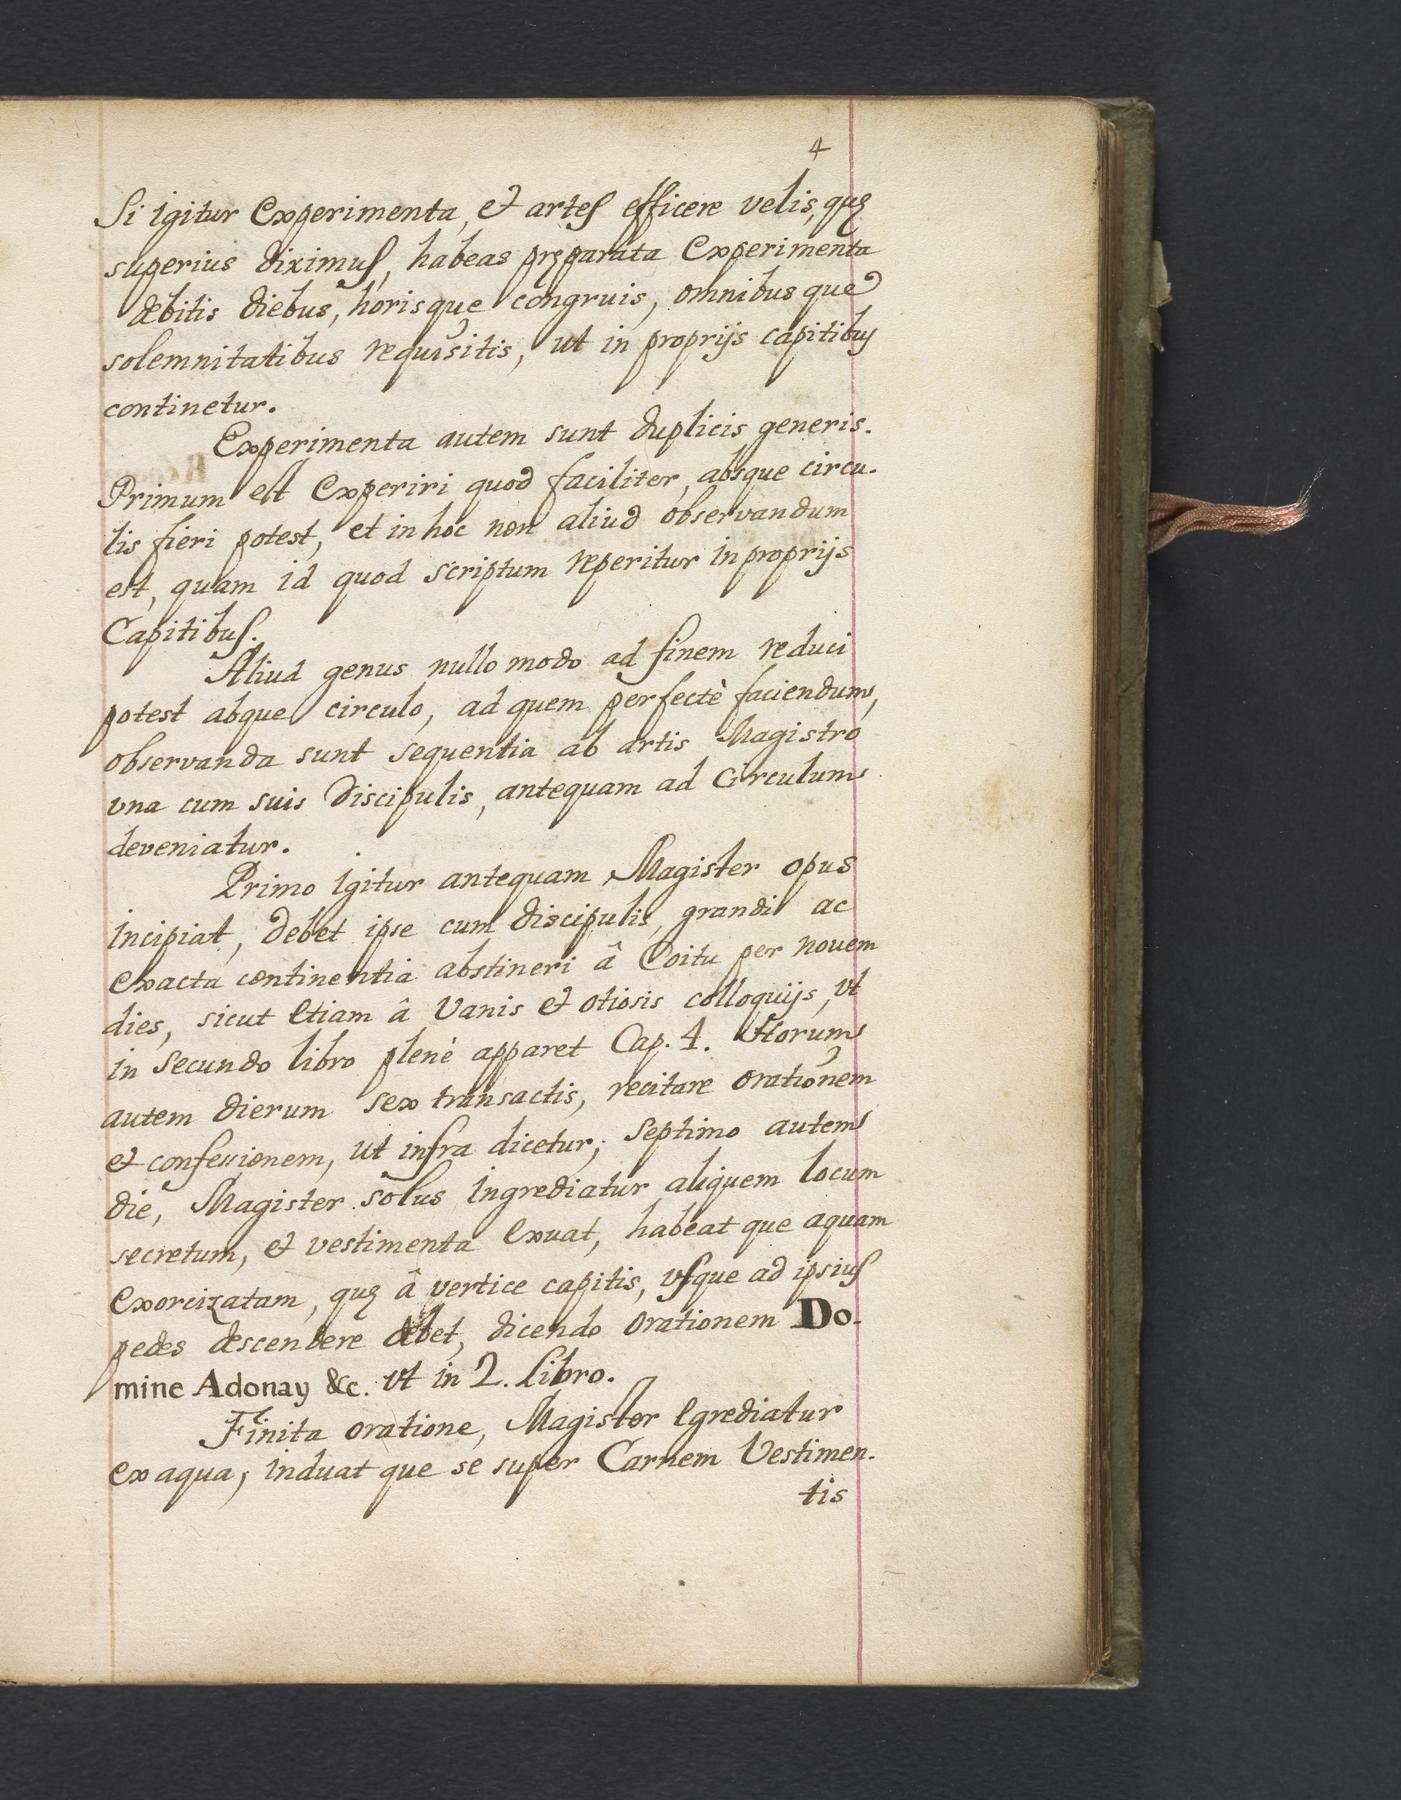 4
Si igitur Experimenta, et artes efficere velis, quę
superius diximus, habeas pręparata Experimenta
debitis diebus, horisque congruis, omnibusque
solemnitatibus requisitis, ut in proprijs capitibus
continetur.
Experimenta autem sunt duplicis generis.
Primum est Experiri quod faciliter, absque circu-
lis fieri potest, et in hoc non aliud observandum
est, quam id quod scriptum reperitur in proprijs
Capitibus.
Aliud genus nullo modo ad finem reduci
potest abque circulo, ad quem perfectè faciendum,
observanda sunt sequentia ab artis Magistro
vna cum suis Discipulis, antequam ad Circulum
deveniatur.
Primo igitur antequam Magister opus
incipiat, debet ipse cum discipulis, grandi ac
exacta continentia abstineri â Coitu per nouem
dies, sicut Etiam â Vanis et otiosis colloquijs, vt
in secundo libro plenè apparet Cap. 4. Horum
autem dierum sex transactis, recitare orationem
et confessionem, ut infra dicetur; septimo autem
die, Magister solus ingrediatur aliquem locum
secretum, et vestimenta Exuat, habeat que aquam
Exorcizatam, quę â vertice capitis, vsque ad ipsius
pedes descendere debet, dicendo orationem Do-
mine Adonay &c. vt in 2. Libro.
Finita oratione, Magister Egrediatur
ex aqua; induat que se super Carnem Vestimen-
tis